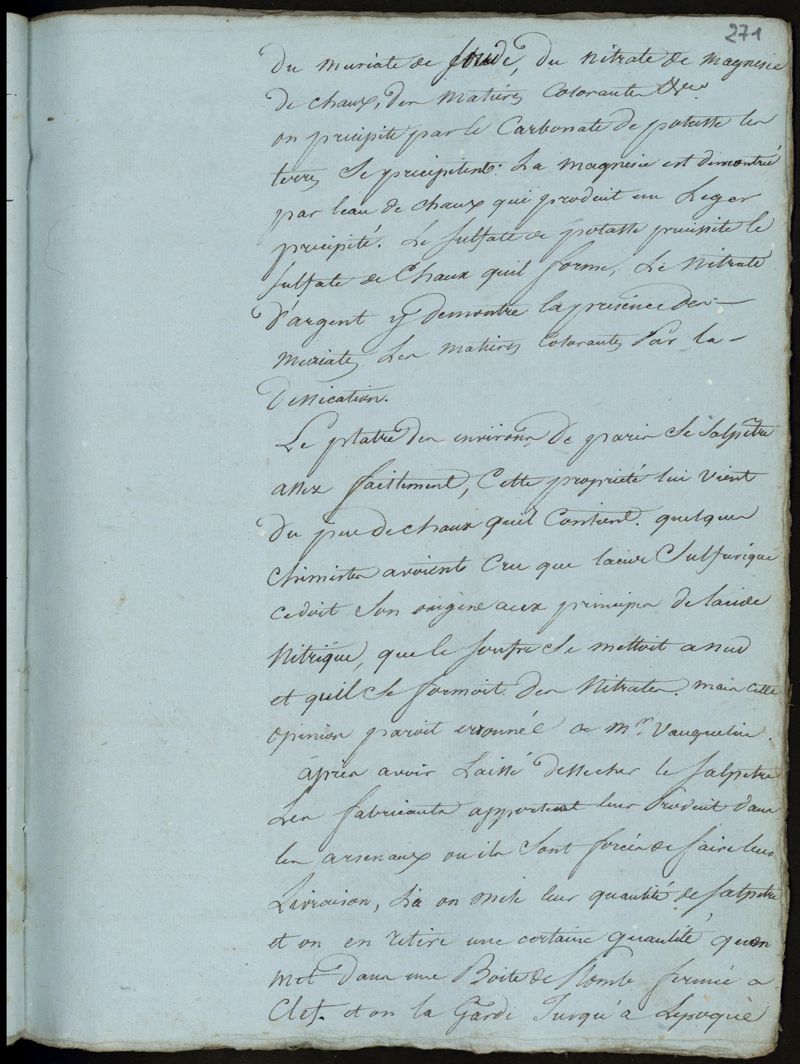 271
du muriate de soude, du nitrate de magnesie
de chaux, des matieres colorantes &c.
on precipite par le Carbonate de potasse les
terres se precipitent. La magnesie est demontrée
par leau de chaux qui produit un Leger
precipité. Le sulfate de potasse precipite le
sulfate de Chaux quil forme, Le Nitrate
d'argent y demontre la presence des
muriates. Les matieres colorantes par la
dessication.
Le platre des environs de paris se salpètre
assez facilement, Cette propriété lui vient
du peu de chaux quil Contient. quelques
Chimistes avoient Cru que lacide sulfurique
cedoit Son origine aux principes de lacide
Nitrique, que le soufre se mettoit a nud
et quil se formoit des Nitrates. mais cette
opinion paroit erronnée a Mr. Vauquelin.
après avoir Laissé dessecher le salpetre
Les fabricants apportent leur Produit dans
les arsenaux ou ils sont forcés de faire leur
Livraison, Là on mele leur quantité de salpetre
et on en retire une certaine quantité quon
met dans une Boite de Plomb fermée a
Clef. et on la Garde Jusqu'a Lepoque